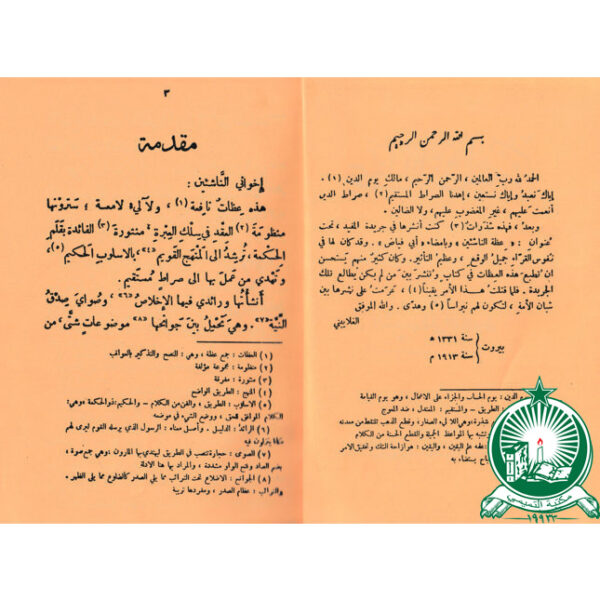 بسم الله الرحمن الرحيم
الحمد لله ربّ العالمين ، الرحمن الرحيم ، مالك يوم الدين (١) .
إياك نعبدُ وإياك نستعين ، إهدنا الصراط المستقيم (٢) ، صراط الذين
أنعمت عليهم ، غير المغضوب عليهم ، ولا الضالين .
وبعدُ ، فهذه شذرات (٣) كنت أنشرها في جريدة المفيد ، تحت
عنوان : « عظة الناشئين » وبامضاء « أبي فياض » . وقد كان لها في
نفوس القراء جميلُ الوقع ، وعظيم التأثير . وكان كثير منهم يستحسن
ان تطبع هذه العظات في كتاب وتنشر بين من لم يكن يطالع تلك
الجريدة . فلما قتلت هذا الأمر يقيناً (٤) ، عزمت على نشرها بين
شبان الأمة ، لتكون لهم نبراساً (٥) وهدى . والله الموفق
الغلاييني
بيروت { سنة ١٣٣١ ه
سنة ١٩١٣ م }
الدين : يوم الحساب والجزاء على الاعمال ، وهو يوم القيامة
الطريق - والمستقيم : المعتدل ، ضد المعوج
مكتبة التميمي
١٩٩٣
٣
مقدمة
إخواني النّاشئين :
هذه عظات نافعة (١) ، ولآلىء لامعة ؛ سترونها
منظومة (٢) العقد في سلك العبرة ؛ منثورة (٣) الفائدة بقلم
الحكمة ، تُرشدُ إلى المنهج القويم «٤» ، بالاسلوب الحكيم «٥» ،
وتهدي من عمل بها الى صراط مستقيم .
أنشأتُها ورائدي فيها الإخلاص «٦» ، وصُواي صدقُ
النّيّة «٧» . وهي تحتمل بين جوانحها «٨» موضوعات شتى ، من
(١) العظات : جمع عظة ، وهي : النصح والتذكير بالعواقب
(٢) منظومة : مجموعة مؤلفة
(٣) منثورة : مفرقة
(٤) المنهج : الطريق الواضح
(٥) الاسلوب : الطريق ، والفن من الكلام - والحكيم : ذو الحكمة ، وهي :
الكلام الموافق للحق ، ووضع الشيء في موضعه
(٦) الرائد : الدليل . وأصل معناه : الرسول الذي يرسله القوم ليرى لهم
مكاناً ينزلون فيه
(٧) الصوى : حجارة تنصب في الطريق ليهتدي بها المارون ، وهي جمع صوة ،
بضم الصاد وفتح الواو مشددة . والمراد بها هنا الادلة
(٨) الجوانح : الاضلاع تحت الترائب مما يلي الصدر كالضلوع مما يلي الظهر .
والترائب : عظام الصدر ، ومفردها تريبة